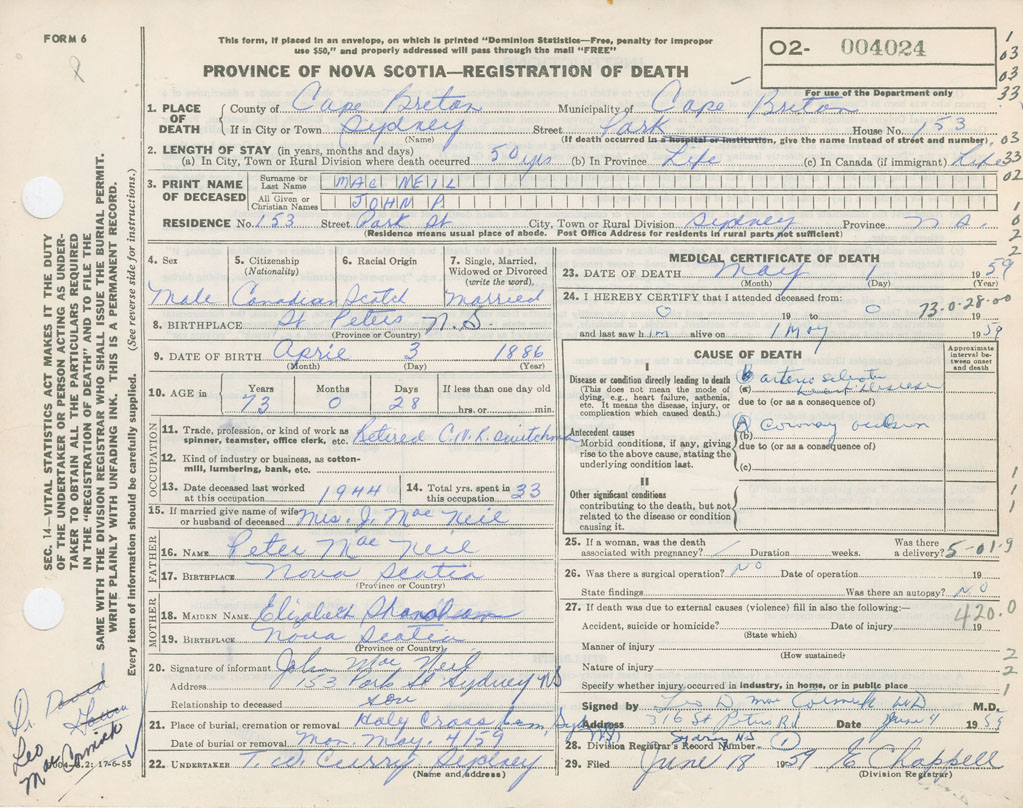 FORM 6
This form, if placed in an envelope, on which is printed "Dominion Statistics—Free, penalty for improper
use $50," and properly addressed will pass through the mail "FREE"
PROVINCE OF NOVA SCOTIA—REGISTRATION OF DEATH
O2- 004024
For use of the Department only
1
03
03
33
03
33
02
1
0
2
2
SEC. 14—VITAL STATISTICS ACT MAKES IT THE DUTY
OF THE UNDERTAKER OR PERSON ACTING AS UNDER-
TAKER TO OBTAIN ALL THE PARTICULARS REQUIRED
IN THE "REGISTRATION OF DEATH" AND TO FILE THE
SAME WITH THE DIVISION REGISTRAR WHO SHALL ISSUE THE BURIAL PERMIT.
WRITE PLAINLY WITH UNFADING INK. THIS IS A PERMANENT RECORD.
Every item of information should be carefully supplied. (See reverse side for instructions.)
1. PLACE OF DEATH County of Cape Breton Municipality of Cape Breton
If in City or Town Sydney Street Park House No. 153
(Name) (If death occurred in a hospital or institution, give the name instead of street and number)
2. LENGTH OF STAY (in years, months and days)
(a) In City, Town or Rural Division where death occurred 50 yrs (b) In Province Life (c) In Canada (if immigrant) Life
3. PRINT NAME OF DECEASED Surname or Last Name MAC NEIL
All Given or Christian Names JOHN P
RESIDENCE No. 153 Street Park St City, Town or Rural Division Sydney Province N S.
(Residence means usual place of abode. Post Office Address for residents in rural parts not sufficient)
4. Sex Male
5. Citizenship (Nationality) Canadian
6. Racial Origin Scotch
7. Single, Married, Widowed or Divorced (write the word), Married
8. BIRTHPLACE St Peters N.S.
(Province or Country)
9. DATE OF BIRTH April 3 1886
(Month) (Day) (Year)
10. AGE in Years 73 Months 0 Days 28 If less than one day old hrs. or min.
OCCUPATION
11. Trade, profession, or kind of work as spinner, teamster, office clerk, etc. Retired C.N.R. switchman
12. Kind of industry or business, as cotton-mill, lumbering, bank, etc.
13. Date deceased last worked at this occupation 1944 14. Total yrs. spent in this occupation 33
15. If married give name of wife or husband of deceased Mrs. J. Mac Neil
FATHER
16. NAME Peter Mac Neil
17. BIRTHPLACE Nova Scotia
(Province or Country)
MOTHER
18. MAIDEN NAME Elizabeth
19. BIRTHPLACE Nova Scotia
(Province or Country)
20. Signature of informant John Mac Neil
Address 153 Park St Sydney NS
Relationship to deceased son
21. Place of burial, cremation or removal Holy Cross Cem Sydney
Date of burial or removal Mon. May. 4/59
22. UNDERTAKER T. W. Curry Sydney
(Name and address)
Dr.
Leo
Mac Cormick
17-6-55
MEDICAL CERTIFICATE OF DEATH
23. DATE OF DEATH May 1 1959
(Month) (Day) (Year)
24. I HEREBY CERTIFY that I attended deceased from: 73-0-28-00
0 19 to 0 19
and last saw him alive on 1 May 1959
CAUSE OF DEATH
Approximate interval between onset and death
I
Disease or condition directly leading to death
(This does not mean the mode of dying, e.g., heart failure, asthenia, etc. It means the disease, injury, or complication which caused death.)
B (a) heart disease
due to (or as a consequence of)
Antecedent causes
Morbid conditions, if any, giving rise to the above cause, stating the underlying condition last.
A (b)
due to (or as a consequence of)
(c)
II
Other significant conditions
contributing to the death, but not related to the disease or condition causing it.
1
1
1
25. If a woman, was the death associated with pregnancy? Duration weeks. Was there a delivery? 5-01-9
26. Was there a surgical operation? NO Date of operation 19
State findings Was there an autopsy? NO
27. If death was due to external causes (violence) fill in also the following:— 420.0
Accident, suicide or homicide? Date of injury 19
(State which)
Manner of injury
(How sustained)
Nature of injury
Specify whether injury occurred in industry, in home, or in public place
2
2
1
Signed by Leo D. Mac Cormick MD M.D.
Address 316 St Peters Rd Sydney NS Date June 4 1959
28. Division Registrar's Record Number 1
29. Filed June 18 1959 E Chappell
(Division Registrar)